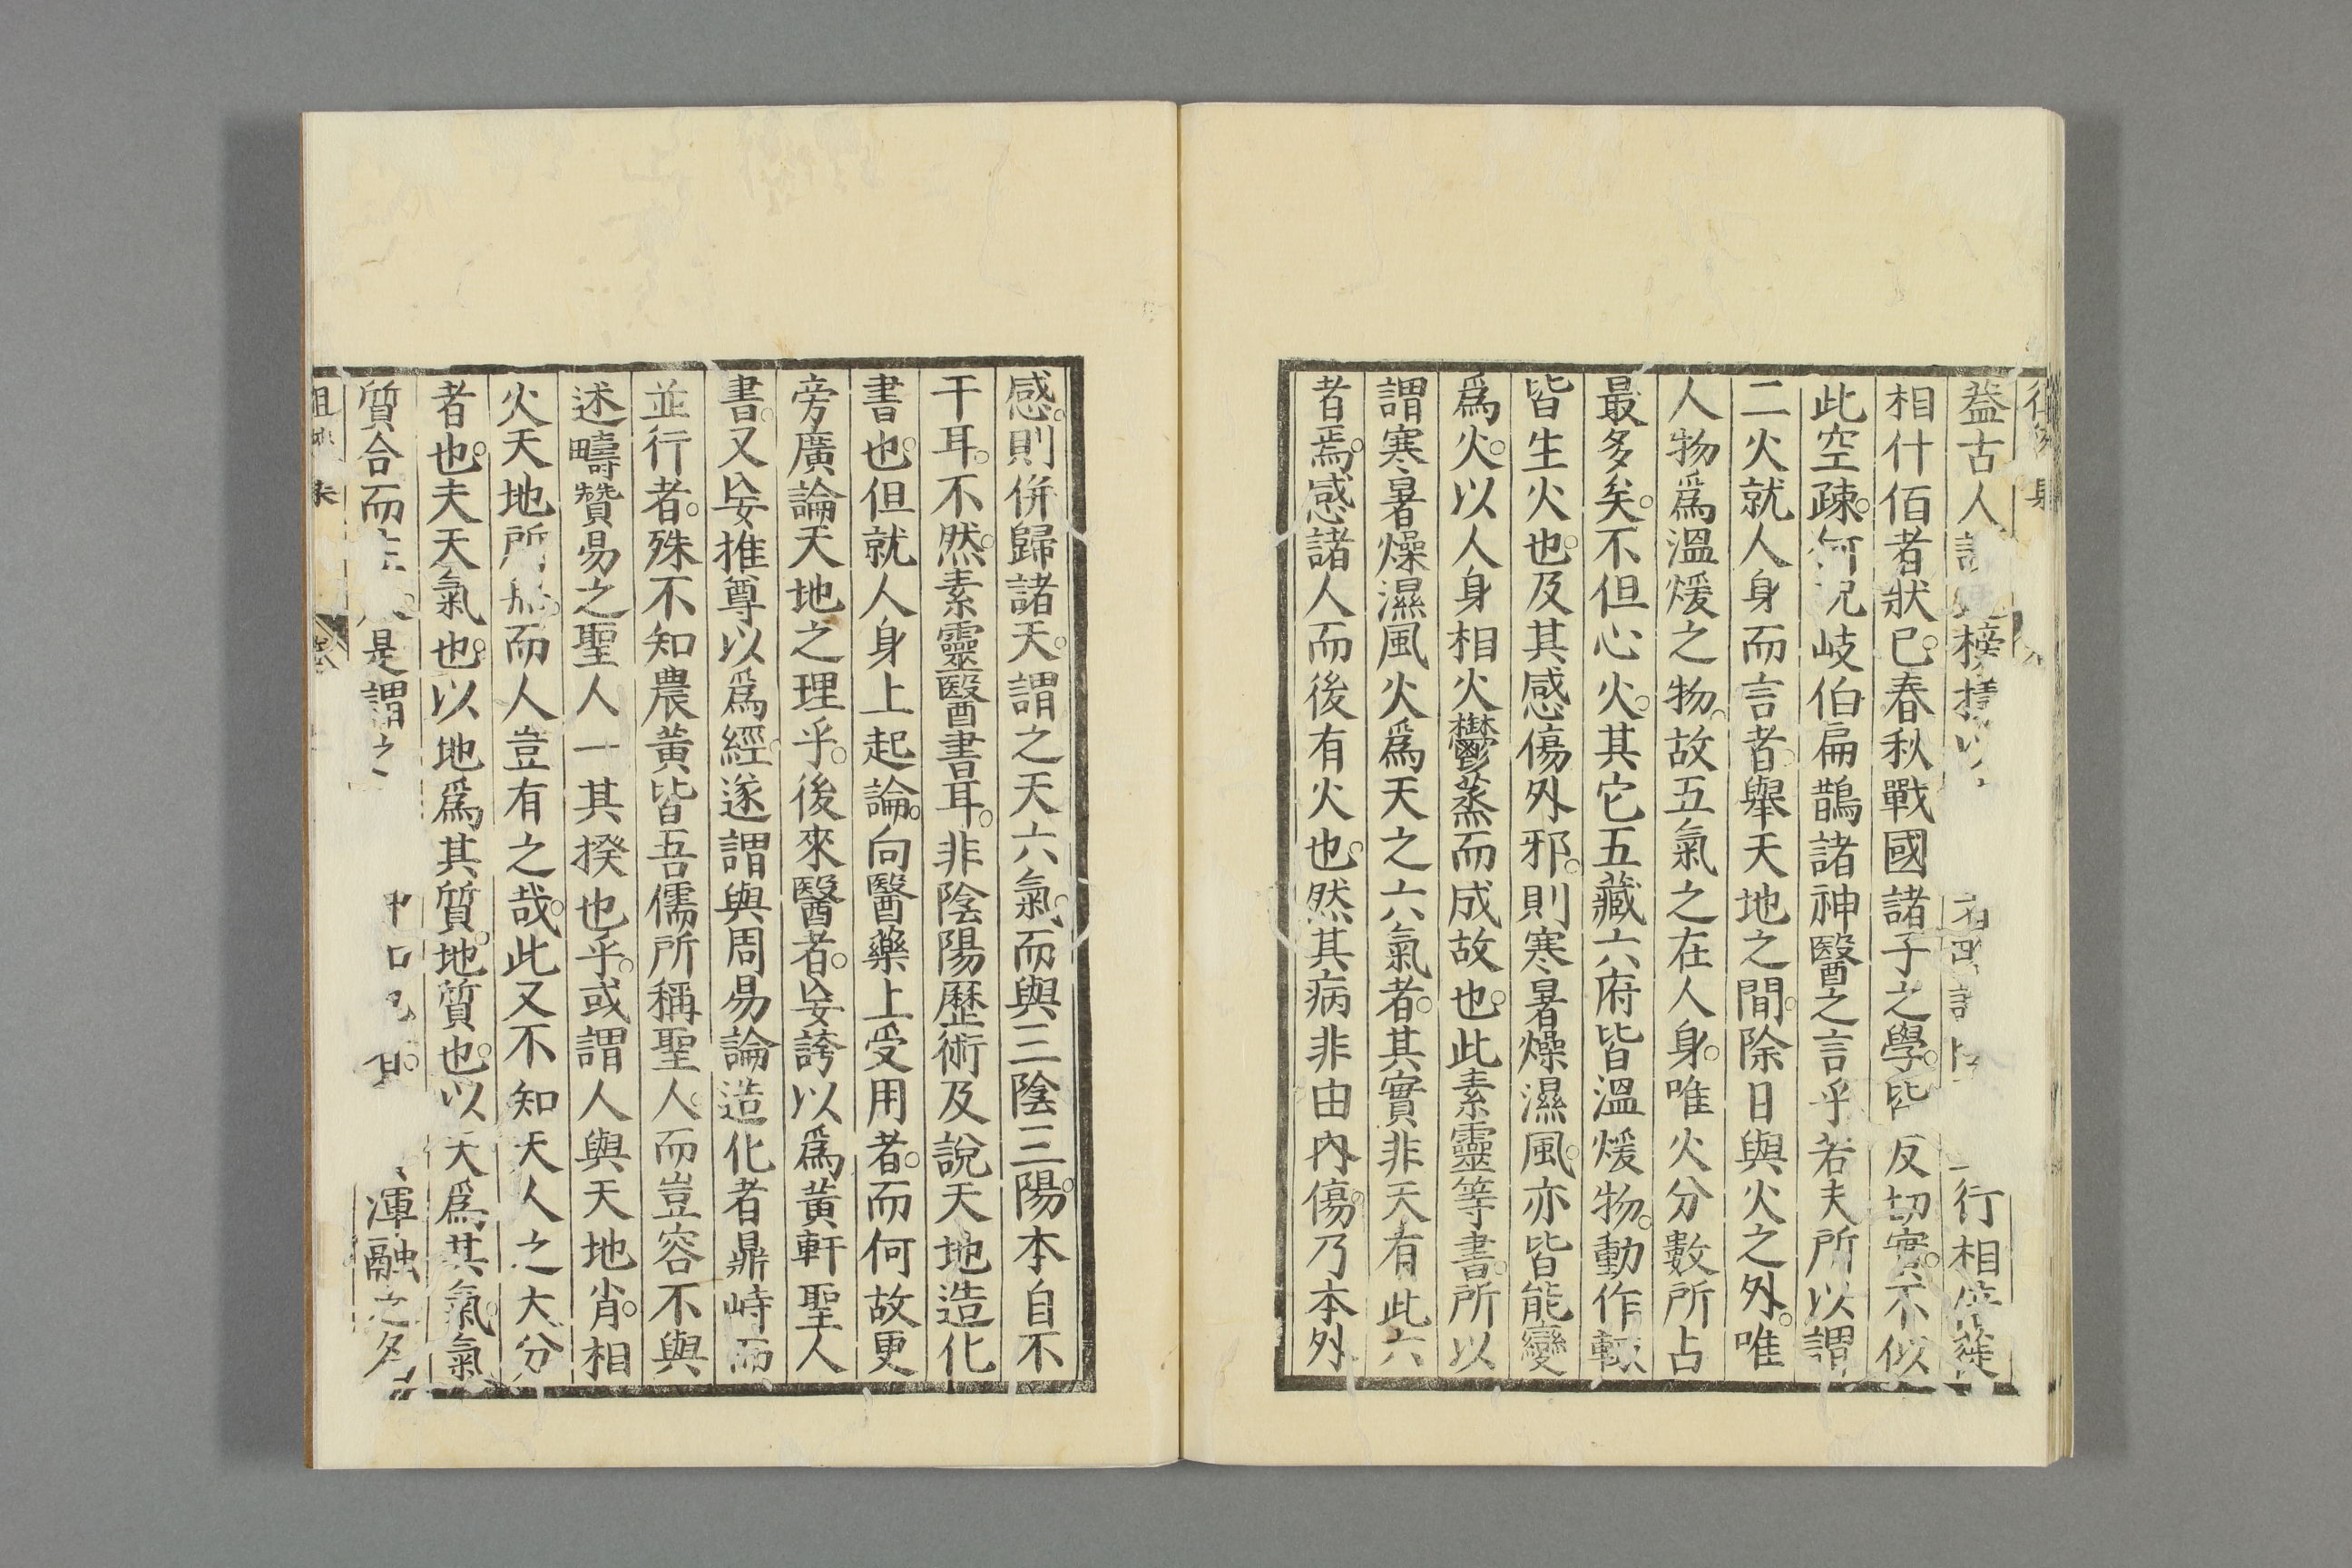 蓋古人
行相
相什佰者狀已春秋戰國諸子之學皆反切實不似
此空疎何況岐伯扁鵲諸神醫之言乎若夫所以謂
二火就人身而言者舉天地之間除日與火之外唯
人物爲溫煖之物故五氣之在人身唯火分數所占
最多矣不但心火其它五藏六府皆溫煖物動作輙
皆生火也及其感傷外邪則寒暑燥濕風亦皆能變
爲火以人身相火鬱蒸而成故也此素靈等書所以
謂寒暑燥濕風火爲天之六氣者其實非天有此六
者焉感諸人而後有火也然其病非由內傷乃本外
感則併歸諸天謂之天六氣而與三陰三陽本自不
干耳不然素靈醫書耳非陰陽歷術及說天地造化
書也但就人身上起論向醫藥上受用者而何故更
旁廣論天地之理乎後來醫者妄誇以爲黃軒聖人
書又妄推尊以爲經遂謂與周易論造化者鼎峙而
並行者殊不知農黃皆吾儒所稱聖人而豈容不與
述疇贊易之聖人一其揆也乎或謂人與天地肖相
火天地所無而人豈有之哉此又不知天人之大分
者也夫天氣也以地爲其質地質也以天爲其氣氣
質合而
是謂之
渾融之名